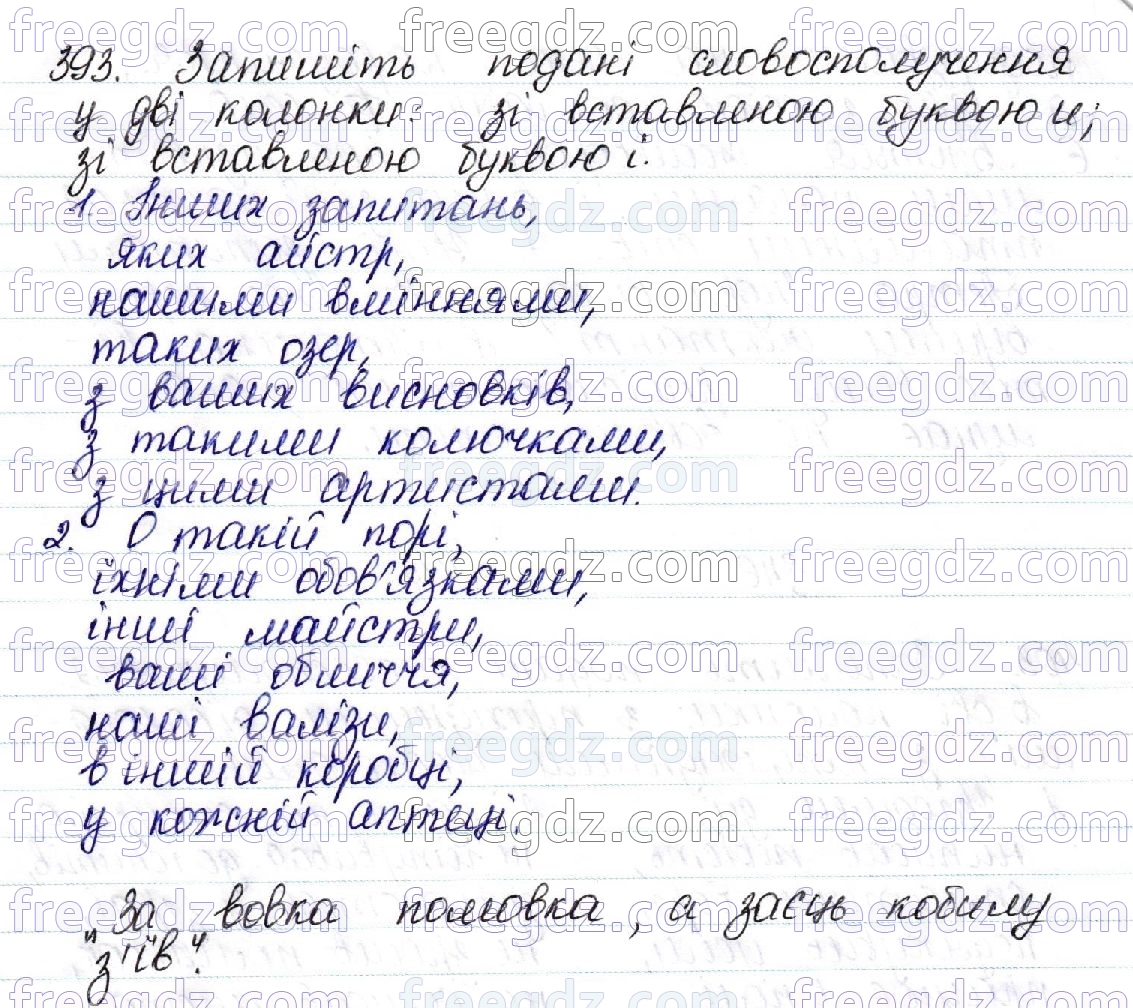 393. Запишіть подані словосполучення
у дві колонки: зі вставленою буквою и;
зі вставленою буквою і.
1. Інших запитань,
яких айстр,
нашими вміннями,
таких озер,
з ваших висновків,
з такими колючками,
з цими артистами.
2. О такій порі,
їхніми обов'язками,
інші майстри,
ваші обличчя,
наші валізи,
в іншій коробці,
у кожній аптеці.
"За вовка помовка, а заєць кобилу
з'їв".
freegdz.com